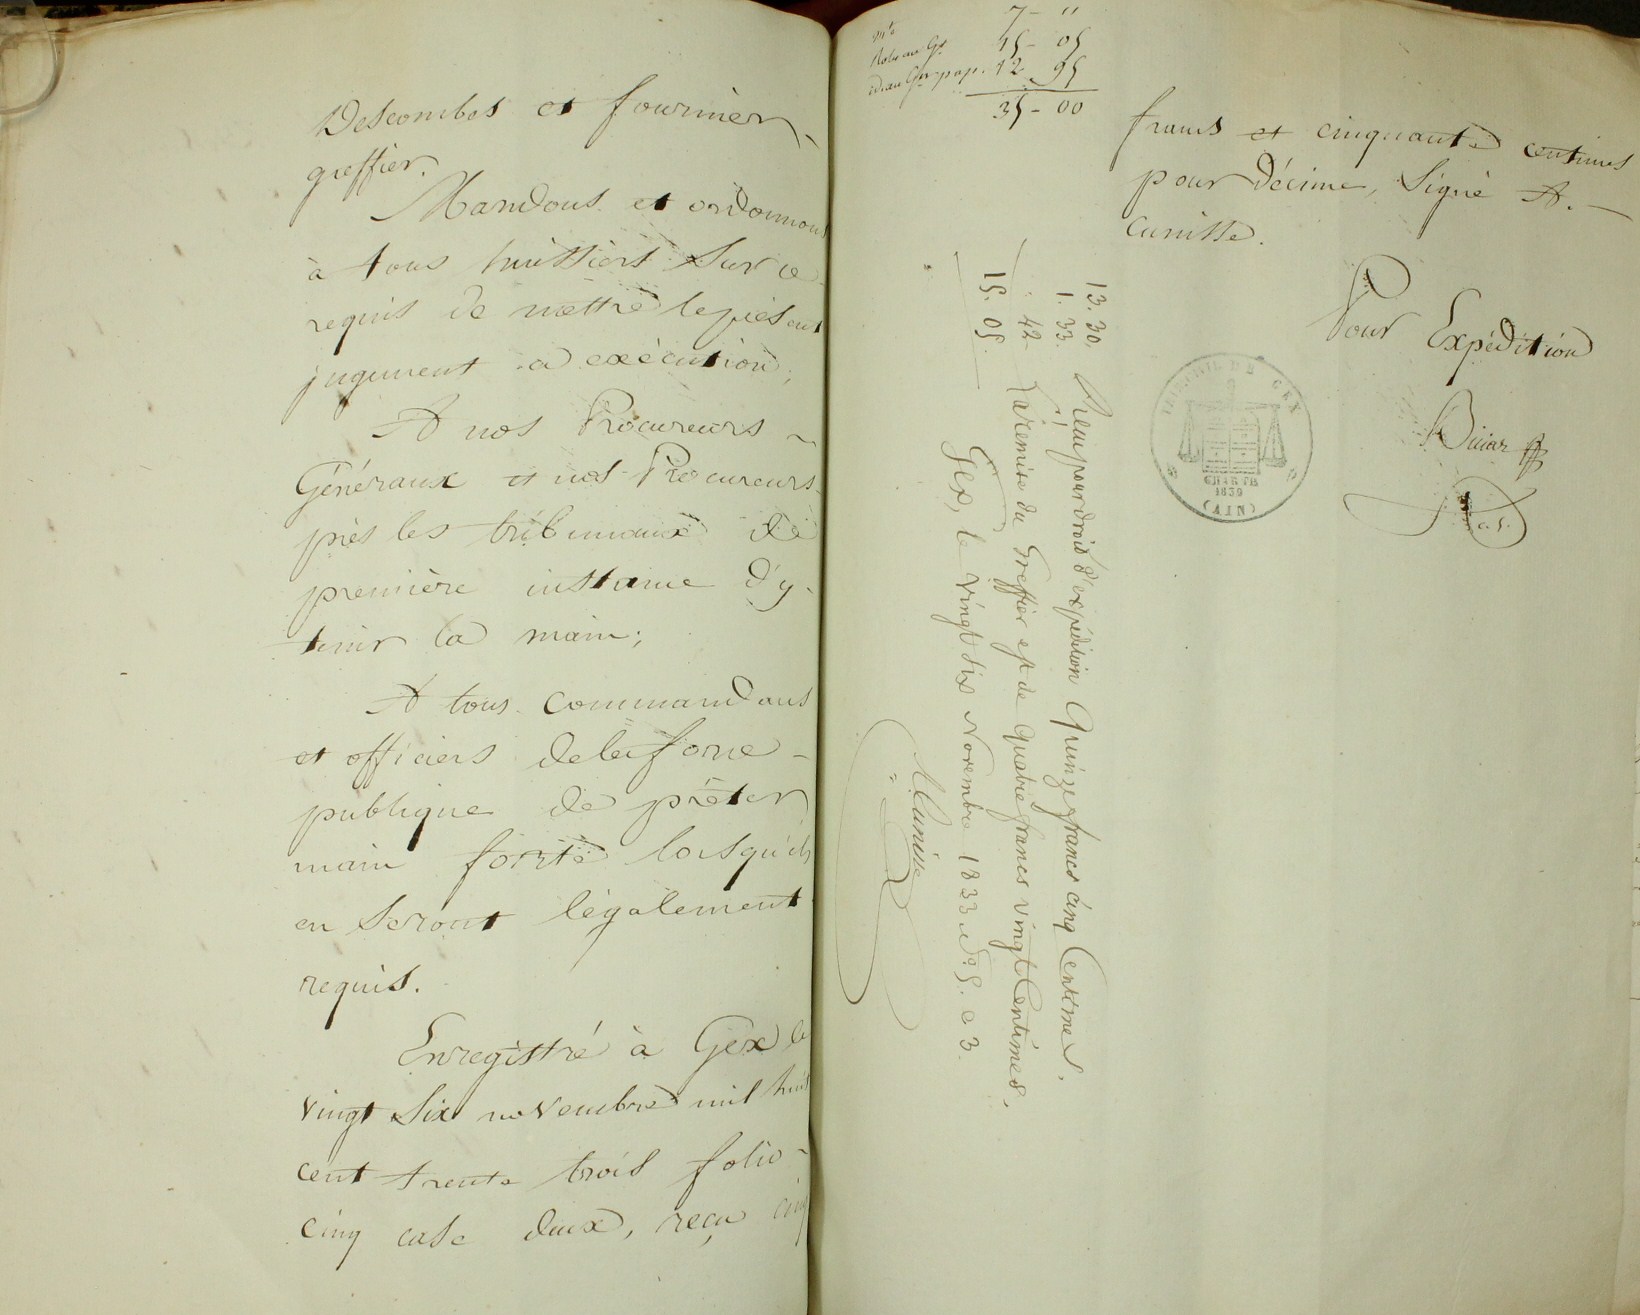 Descombes et fournier
greffier.
Mandons et ordonnons
à tous huissiers Sur ce
requis de mettre le présent
jugement a exécution;
A nos Procureurs
Généraux et nos Procureurs
près les tribunaux de
première instance d'y
tenir la main;
A tous commandans
et officiers de la force
publique de prêter
main forte lorsqu'ils
en Seront légalement
requis.
Enregistré à Gex le
vingt Six novembre mil huit
cent trente trois folio
cinq case deux, reçu cinq
7 - "
15 - 05
12 95
35 - 00
francs et cinquante centimes
pour décime, Signé A.
Cunisse.
Pour Expédition
TRIBUNAL DE GEX
CHARTE
1830
(AIN)
13. 30.
1. 33.
. 42
15. 05.
Reçu pour droit d'expédition Quinze francs cinq Centimes.
La remise du Greffier est de quatre francs vingt Centimes.
Gex, le vingt six Novembre 1833
ACunisse